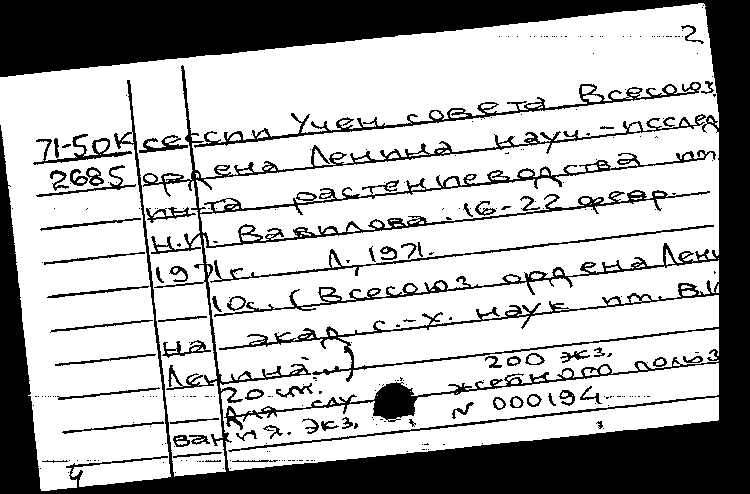 2
71-50К сессии Учен. совета Всесоюз.
2685 ордена Ленина науч.-исслед.
ин-та растениеводства им.
Н.И. Вавилова. 16-22 февр.
1971г. Л., 1971.
10с. (Всесоюз. ордена Лени
на акад. с.-х. наук им. В.И
Ленина)
20 см. 200 экз.
Для слу жебного польз
вания. Экз. № 000194
4